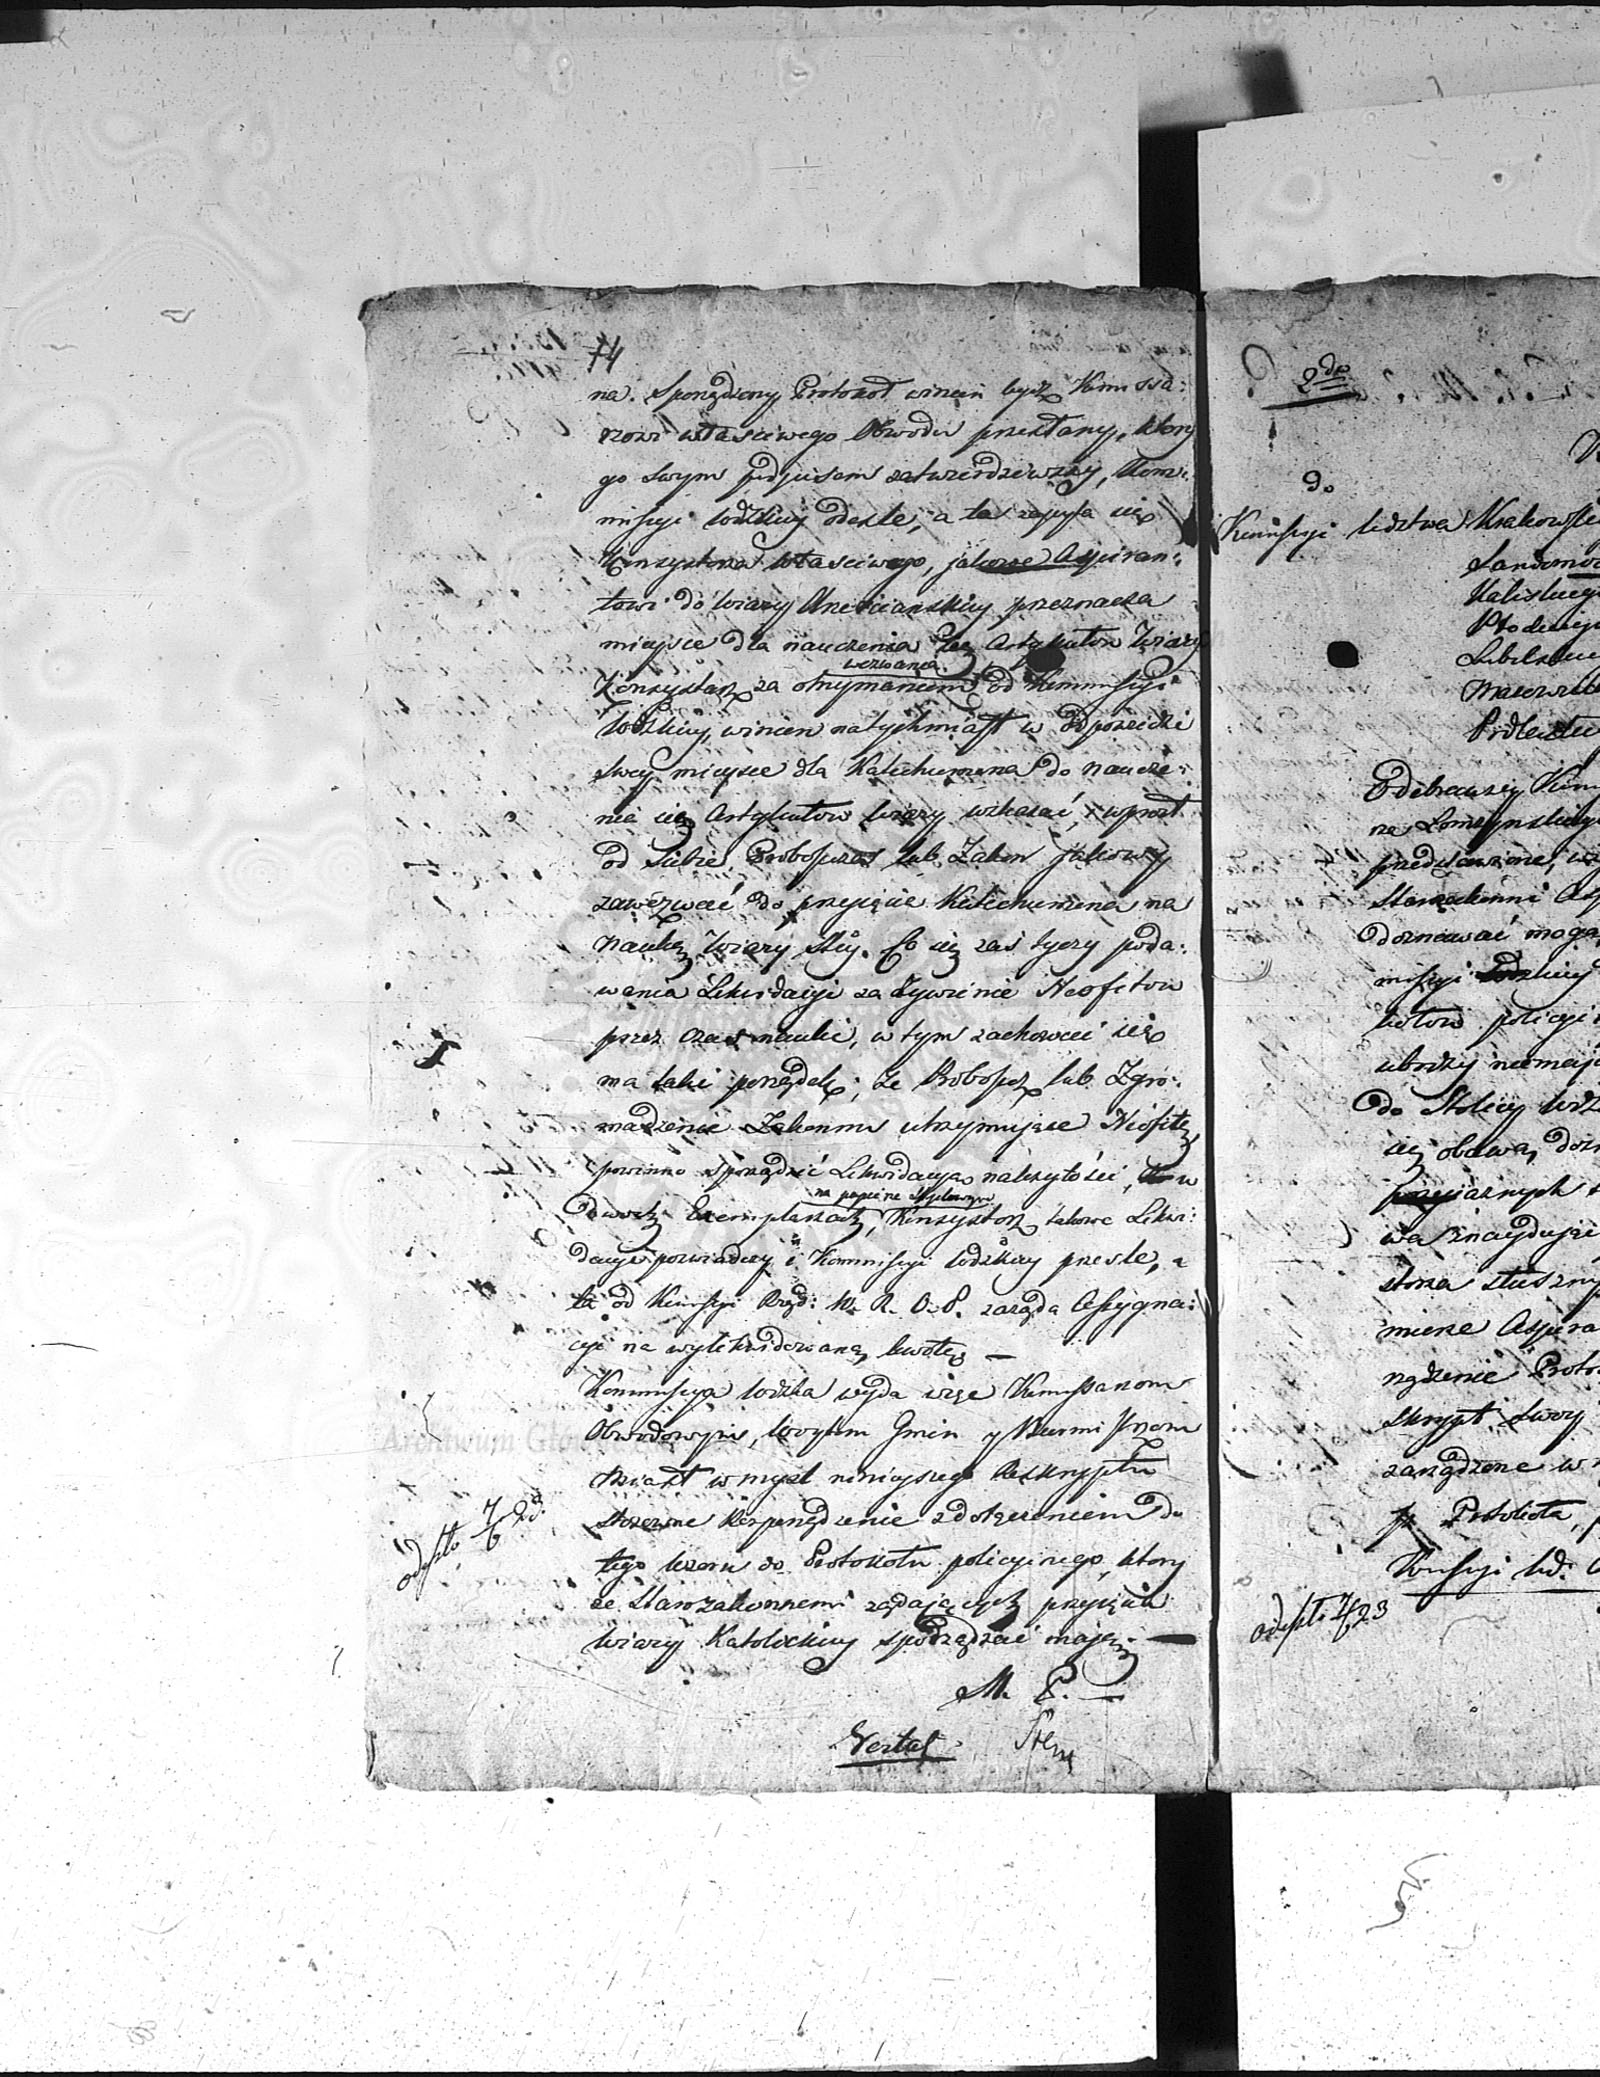 74
na. Sporządzony Protokoł winien bydź Kommissa:
rzowi właściwego Obwodu przesłany, ktory
go swym podpisem zatwierdziwszy, Kom:
missyi Wdzkiey odeszle, a ta zapyta się
Konsystorza właściwego, jakowe Aspiran:
towi do Wiary Chrześciańskiey przeznacza
mieysce dla nauczenia się Artykułow Wiary
wezwania
Konsystorz za otrzymaniem od Kommissyi
Wdzkiey, winien natychmiast w odpowiedzi
swey mieysce dla Katechumena do naucze:
nia się Artykułow wiary wskazać, i wprost
od siebie Proboszcza lub Zakon jakowy
zawezwać do przyjęcia Katechumena na
naukę Wiary Stey. Co się zaś tyczy poda:
wania Likwidacyi za żywienie Neofitow
przez czas nauki, w tym zachować się
ma taki porządek, że Proboszcz lub Zgro:
madzenie Zakonne utrzymujące Neofitę
powinno sporządzić Likwidacyą należytości, w
na papierze stęplowym
dwoch Exemplarzach, Konsystorz takowe Likwi:
dacye poświadczy i Kommissyi Wdzkiey prześle, a
ta od Kommissyi Rząd: W. R. O. P. zażąda Assygna:
cyi na wylikwidowaną kwotę. —
Kommissya Wdzka wyda więc Kommissarzom
Obwodowym, Woytom Gmin y Burmistrzom
Miast w myśl ninieyszego Reskryptu
stosowne Rozporządzenie z dołączeniem do
tego wzoru do Protokołu policyinego, ktory
ze Starozakonnemi żądającymi przyjęcia
wiary Katolickiey sporządzać mają. —
M. P. —
odeszło 7/6 23.
2do
do
Kommissyi Wdztwa Krakowskie
Sandomie
Kaliskiego
Płockiego
Lubelskie
Mazowie
Podlaskie
Odebrawszy Kom
na Łomzynskiego
przedstawione, wz
Starozakonni As
doznawać mogą
missyi Wdzkiey
kołow policyi
ubodzy niemaj
do Stolicy Wdz
się obawą dozn
przyjaznych
wa znayduje
storza słuszny
mienie Aspira
rządzenie Proto
Skrypt swoy
zarządzone w
Protokołu,
Kommissyi Wd:
odeszło 7/6 23
Archiwum Głów